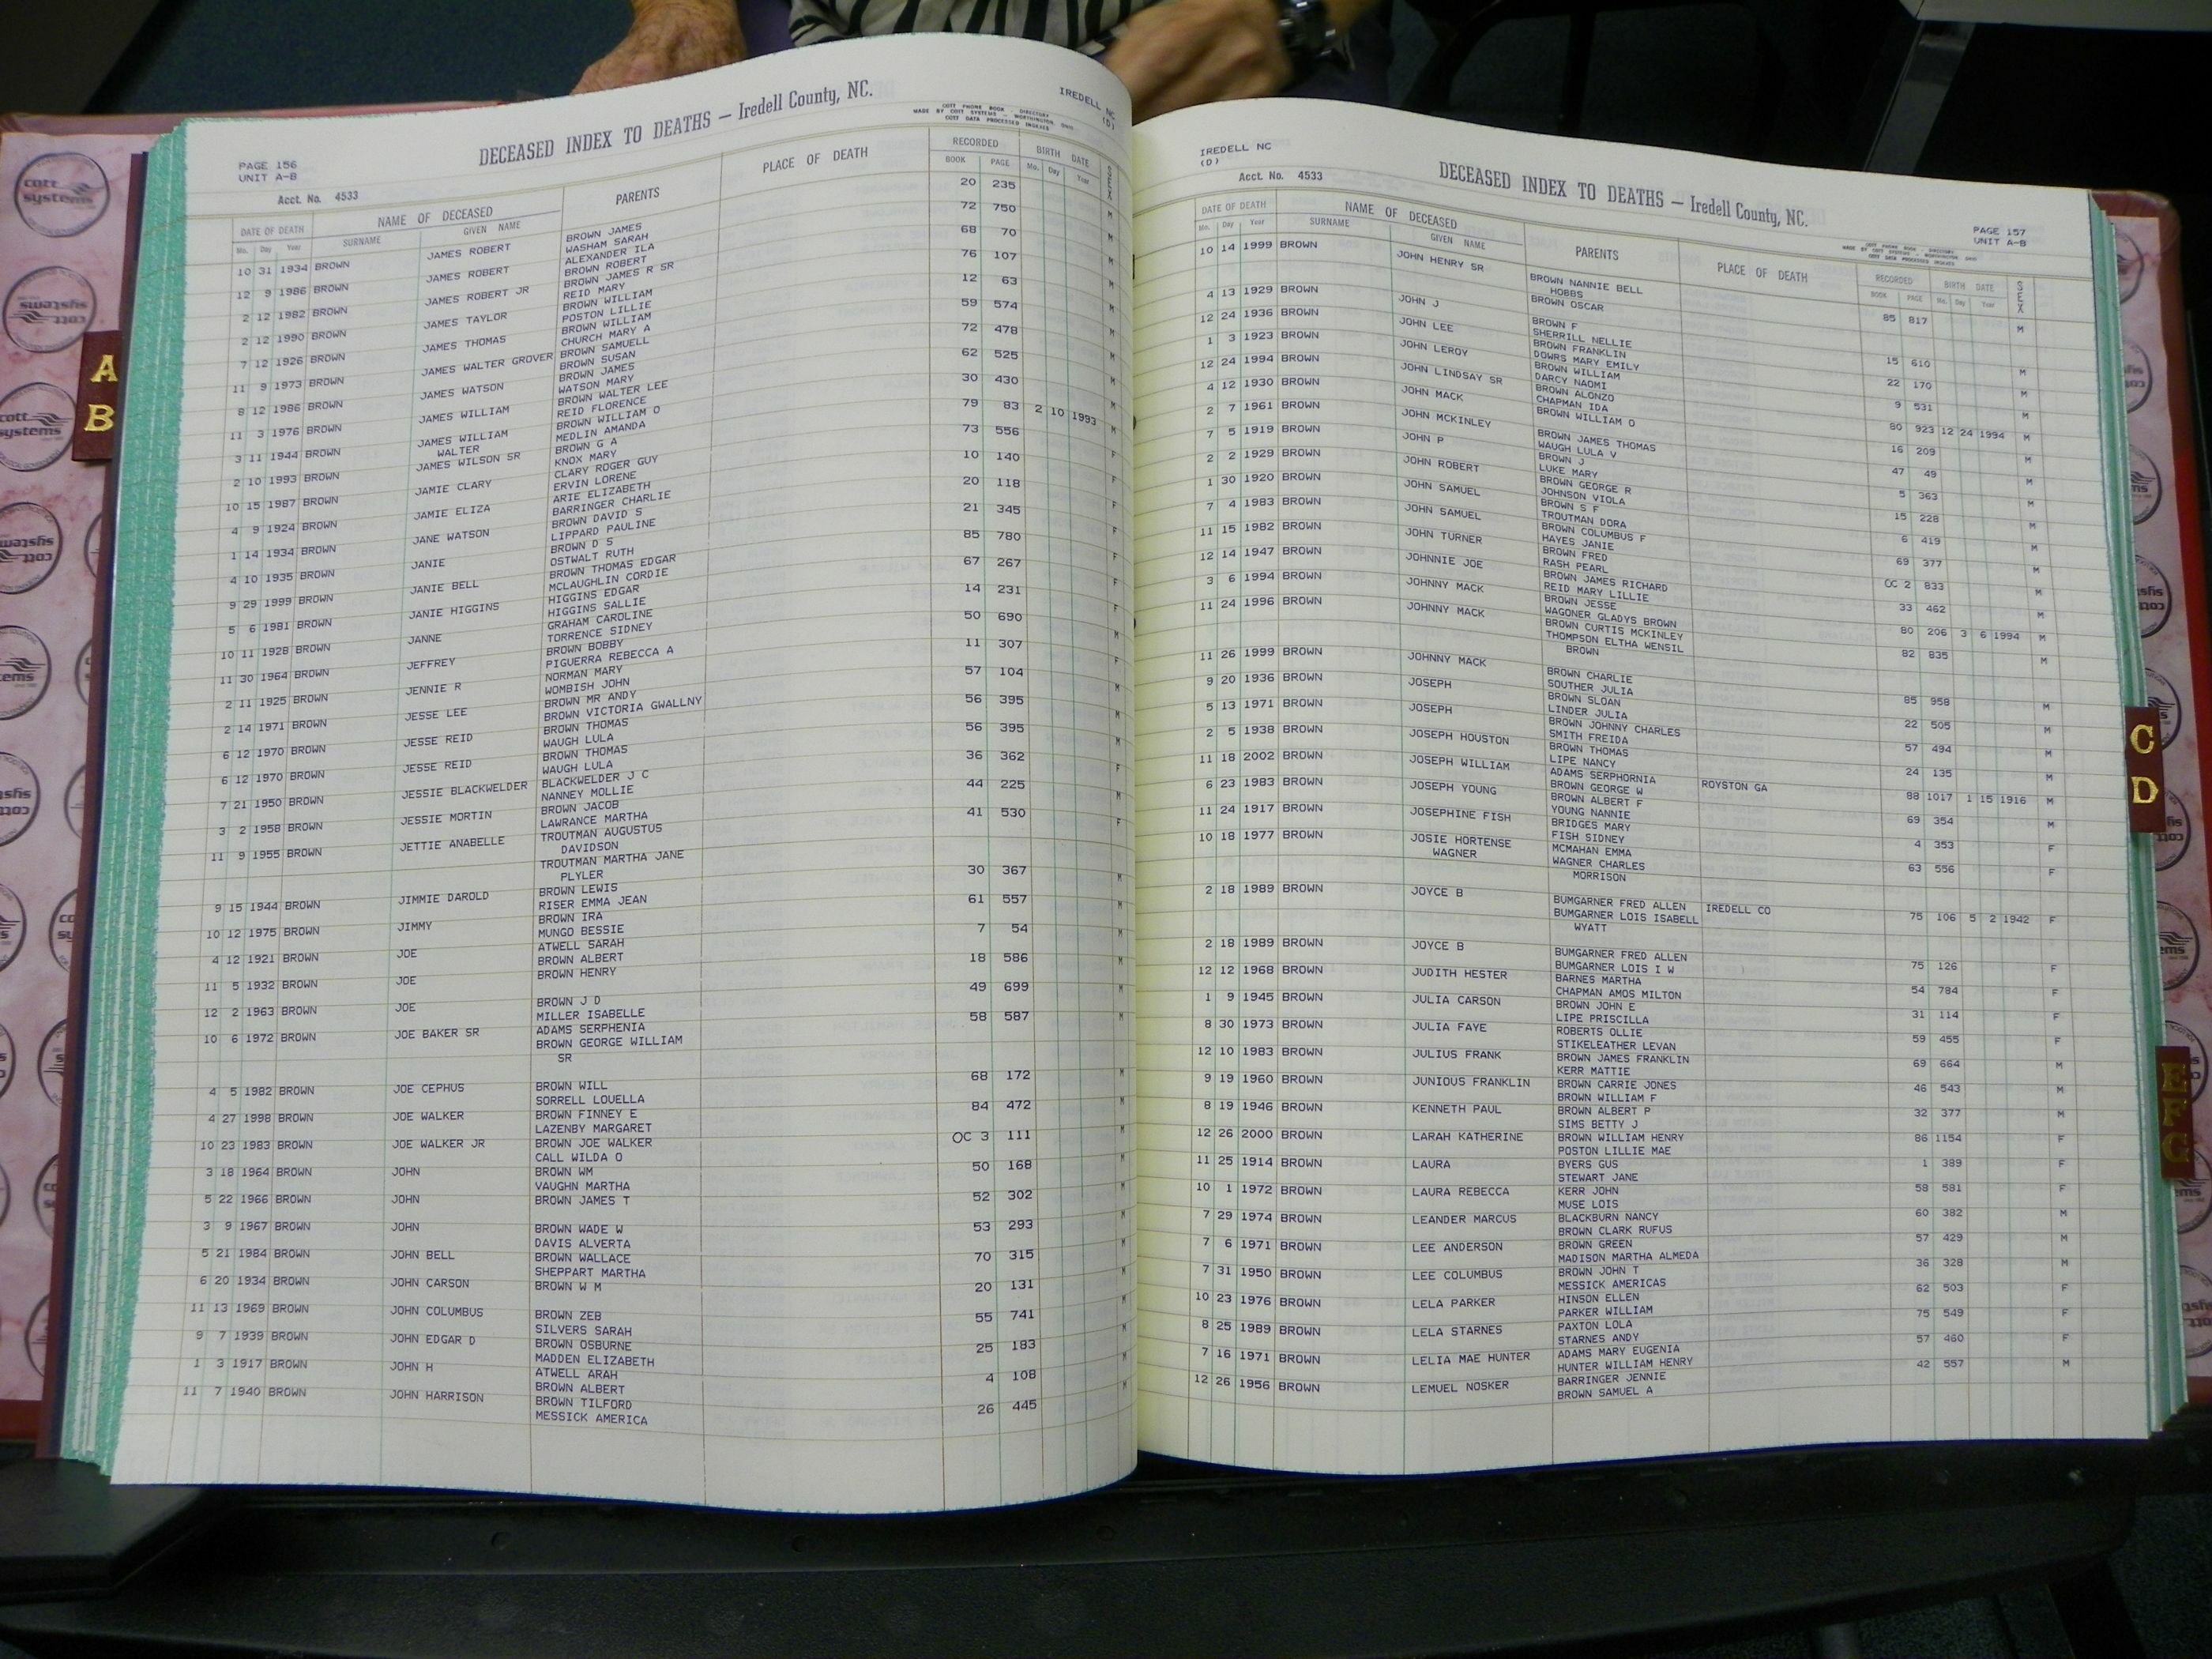 IREDELL NC
(D)
COTT PHONE BOOK - DIRECTORY
MADE BY COTT SYSTEMS - WORTHINGTON, OHIO
COTT DATA PROCESSED INDEXES
DECEASED INDEX TO DEATHS — Iredell County, NC.
PAGE 156
UNIT A-B
Acct. No. 4533
DATE OF DEATH NAME OF DECEASED PARENTS PLACE OF DEATH RECORDED BIRTH DATE SEX
Mo. Day Year SURNAME GIVEN NAME BOOK PAGE Mo. Day Year
10 31 1934 BROWN JAMES ROBERT BROWN JAMES 20 235 M
WASHAM SARAH
12 9 1986 BROWN JAMES ROBERT ALEXANDER ILA 72 750 M
BROWN ROBERT
2 12 1982 BROWN JAMES ROBERT JR BROWN JAMES R SR 68 70 M
REID MARY
2 12 1990 BROWN JAMES TAYLOR BROWN WILLIAM 76 107 M
POSTON LILLIE
7 12 1926 BROWN JAMES THOMAS BROWN WILLIAM 12 63 M
CHURCH MARY A
11 9 1973 BROWN JAMES WALTER GROVER BROWN SAMUELL 59 574 M
BROWN SUSAN
8 12 1986 BROWN JAMES WATSON BROWN JAMES 72 478 M
WATSON MARY
11 3 1976 BROWN JAMES WILLIAM BROWN WALTER LEE 62 525 M
REID FLORENCE
3 11 1944 BROWN JAMES WILLIAM BROWN WILLIAM O 30 430 M
WALTER MEDLIN AMANDA
2 10 1993 BROWN JAMES WILSON SR BROWN G A 79 83 2 10 1993 M
KNOX MARY
10 15 1987 BROWN JAMIE CLARY CLARY ROGER GUY 73 556 F
ERVIN LORENE
4 9 1924 BROWN JAMIE ELIZA ARIE ELIZABETH 10 140 F
BARRINGER CHARLIE
1 14 1934 BROWN JANE WATSON BROWN DAVID S 20 118 F
LIPPARD PAULINE
4 10 1935 BROWN JANIE BROWN D S 21 345 F
OSTWALT RUTH
9 29 1999 BROWN JANIE BELL BROWN THOMAS EDGAR 85 780 F
MCLAUGHLIN CORDIE
5 6 1981 BROWN JANIE HIGGINS HIGGINS EDGAR 67 267 F
HIGGINS SALLIE
10 11 1928 BROWN JANNE GRAHAM CAROLINE 14 231 F
TORRENCE SIDNEY
11 30 1964 BROWN JEFFREY BROWN BOBBY 50 690 M
PIGUERRA REBECCA A
2 11 1925 BROWN JENNIE R NORMAN MARY 11 307 F
WOMBISH JOHN
2 14 1971 BROWN JESSE LEE BROWN MR ANDY 57 104 M
BROWN VICTORIA GWALLNY
6 12 1970 BROWN JESSE REID BROWN THOMAS 56 395 M
WAUGH LULA
6 12 1970 BROWN JESSE REID BROWN THOMAS 56 395 M
WAUGH LULA
7 21 1950 BROWN JESSIE BLACKWELDER BLACKWELDER J C 36 362 F
NANNEY MOLLIE
3 2 1958 BROWN JESSIE MORTIN BROWN JACOB 44 225 M
LAWRANCE MARTHA
11 9 1955 BROWN JETTIE ANABELLE TROUTMAN AUGUSTUS 41 530 F
DAVIDSON
TROUTMAN MARTHA JANE
PLYLER
9 15 1944 BROWN JIMMIE DAROLD BROWN LEWIS 30 367 M
RISER EMMA JEAN
10 12 1975 BROWN JIMMY BROWN IRA 61 557 M
MUNGO BESSIE
4 12 1921 BROWN JOE ATWELL SARAH 7 54 M
BROWN ALBERT
11 5 1932 BROWN JOE BROWN HENRY 18 586 M
12 2 1963 BROWN JOE BROWN J D 49 699 M
MILLER ISABELLE
10 6 1972 BROWN JOE BAKER SR ADAMS SERPHENIA 58 587 M
BROWN GEORGE WILLIAM
SR
4 5 1982 BROWN JOE CEPHUS BROWN WILL 68 172 M
SORRELL LOUELLA
4 27 1998 BROWN JOE WALKER BROWN FINNEY E 84 472 M
LAZENBY MARGARET
10 23 1983 BROWN JOE WALKER JR BROWN JOE WALKER OC 3 111 M
CALL WILDA O
3 18 1964 BROWN JOHN BROWN WM 50 168 M
VAUGHN MARTHA
5 22 1966 BROWN JOHN BROWN JAMES T 52 302 M
3 9 1967 BROWN JOHN BROWN WADE W 53 293 M
DAVIS ALVERTA
5 21 1984 BROWN JOHN BELL BROWN WALLACE 70 315 M
SHEPPART MARTHA
6 20 1934 BROWN JOHN CARSON BROWN W M 20 131 M
11 13 1969 BROWN JOHN COLUMBUS BROWN ZEB 55 741 M
SILVERS SARAH
9 7 1939 BROWN JOHN EDGAR D BROWN OSBURNE 25 183 M
MADDEN ELIZABETH
1 3 1917 BROWN JOHN H ATWELL ARAH 4 108 M
BROWN ALBERT
11 7 1940 BROWN JOHN HARRISON BROWN TILFORD 26 445
MESSICK AMERICA
IREDELL NC
(D)
Acct. No. 4533
DECEASED INDEX TO DEATHS — Iredell County, NC.
PAGE 157
UNIT A-B
DATE OF DEATH NAME OF DECEASED PARENTS PLACE OF DEATH RECORDED BIRTH DATE SEX
Mo. Day Year SURNAME GIVEN NAME BOOK PAGE Mo. Day Year
10 14 1999 BROWN JOHN HENRY SR BROWN NANNIE BELL 85 817 M
HOBBS
BROWN OSCAR
4 13 1929 BROWN JOHN J BROWN F 15 610 M
SHERRILL NELLIE
12 24 1936 BROWN JOHN LEE BROWN FRANKLIN 22 170 M
DOWRS MARY EMILY
1 3 1923 BROWN JOHN LEROY BROWN WILLIAM 9 531 M
DARCY NAOMI
12 24 1994 BROWN JOHN LINDSAY SR BROWN ALONZO 80 923 12 24 1994 M
CHAPMAN IDA
4 12 1930 BROWN JOHN MACK BROWN WILLIAM O 16 209 M
2 7 1961 BROWN JOHN MCKINLEY BROWN JAMES THOMAS 47 49 M
WAUGH LULA V
7 5 1919 BROWN JOHN P BROWN J 5 363 M
LUKE MARY
2 2 1929 BROWN JOHN ROBERT BROWN GEORGE R 15 228 M
JOHNSON VIOLA
1 30 1920 BROWN JOHN SAMUEL BROWN S F 6 419 M
TROUTMAN DORA
7 4 1983 BROWN JOHN SAMUEL BROWN COLUMBUS F 69 377 M
HAYES JANIE
11 15 1982 BROWN JOHN TURNER BROWN FRED OC 2 833 M
RASH PEARL
12 14 1947 BROWN JOHNNIE JOE BROWN JAMES RICHARD 33 462 M
REID MARY LILLIE
3 6 1994 BROWN JOHNNY MACK BROWN JESSE 80 206 3 6 1994 M
WAGONER GLADYS BROWN
11 24 1996 BROWN JOHNNY MACK BROWN CURTIS MCKINLEY 82 835 M
THOMPSON ELTHA WENSIL
BROWN
11 26 1999 BROWN JOHNNY MACK BROWN CHARLIE 85 958 M
SOUTHER JULIA
9 20 1936 BROWN JOSEPH BROWN SLOAN 22 505 M
LINDER JULIA
5 13 1971 BROWN JOSEPH BROWN JOHNNY CHARLES 57 494 M
SMITH FREIDA
2 5 1938 BROWN JOSEPH HOUSTON BROWN THOMAS 24 135 M
LIPE NANCY
11 18 2002 BROWN JOSEPH WILLIAM ADAMS SERPHORNIA ROYSTON GA 88 1017 1 15 1916 M
BROWN GEORGE W
6 23 1983 BROWN JOSEPH YOUNG BROWN ALBERT F 69 354 M
YOUNG NANNIE
11 24 1917 BROWN JOSEPHINE FISH BRIDGES MARY 4 353 F
FISH SIDNEY
10 18 1977 BROWN JOSIE HORTENSE MCMAHAN EMMA 63 556 F
WAGNER WAGNER CHARLES
MORRISON
2 18 1989 BROWN JOYCE B BUMGARNER FRED ALLEN IREDELL CO 75 106 5 2 1942 F
BUMGARNER LOIS ISABELL
WYATT
2 18 1989 BROWN JOYCE B BUMGARNER FRED ALLEN 75 126 F
BUMGARNER LOIS I W
12 12 1968 BROWN JUDITH HESTER BARNES MARTHA 54 784 F
CHAPMAN AMOS MILTON
1 9 1945 BROWN JULIA CARSON BROWN JOHN E 31 114 F
LIPE PRISCILLA
8 30 1973 BROWN JULIA FAYE ROBERTS OLLIE 59 455 F
STIKELEATHER LEVAN
12 10 1983 BROWN JULIUS FRANK BROWN JAMES FRANKLIN 69 664 M
KERR MATTIE
9 19 1960 BROWN JUNIOUS FRANKLIN BROWN CARRIE JONES 46 543 M
BROWN WILLIAM F
8 19 1946 BROWN KENNETH PAUL BROWN ALBERT P 32 377 M
SIMS BETTY J
12 26 2000 BROWN LARAH KATHERINE BROWN WILLIAM HENRY 86 1154 F
POSTON LILLIE MAE
11 25 1914 BROWN LAURA BYERS GUS 1 389 F
STEWART JANE
10 1 1972 BROWN LAURA REBECCA KERR JOHN 58 581 F
MUSE LOIS
7 29 1974 BROWN LEANDER MARCUS BLACKBURN NANCY 60 382 M
BROWN CLARK RUFUS
7 6 1971 BROWN LEE ANDERSON BROWN GREEN 57 429 M
MADISON MARTHA ALMEDA
7 31 1950 BROWN LEE COLUMBUS BROWN JOHN T 36 328 M
MESSICK AMERICAS
10 23 1976 BROWN LELA PARKER HINSON ELLEN 62 503 F
PARKER WILLIAM
8 25 1989 BROWN LELA STARNES PAXTON LOLA 75 549 F
STARNES ANDY
7 16 1971 BROWN LELIA MAE HUNTER ADAMS MARY EUGENIA 57 460 F
HUNTER WILLIAM HENRY
12 26 1956 BROWN LEMUEL NOSKER BARRINGER JENNIE 42 557 M
BROWN SAMUEL A
A
B
C
D
E
F
G
cott
systems